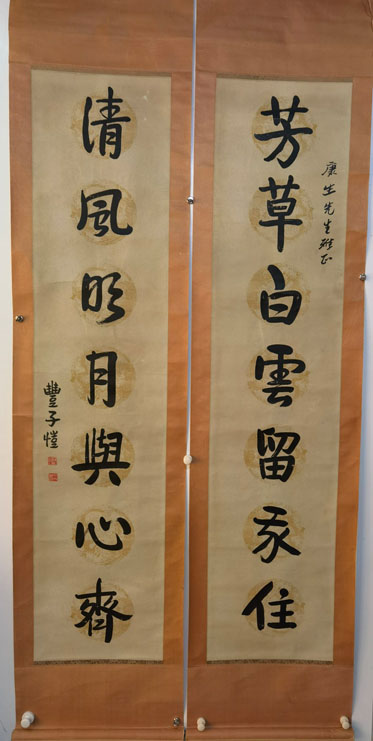 芳草白雲留我住
康生先生雅正
清風明月與心齊
豐子愷